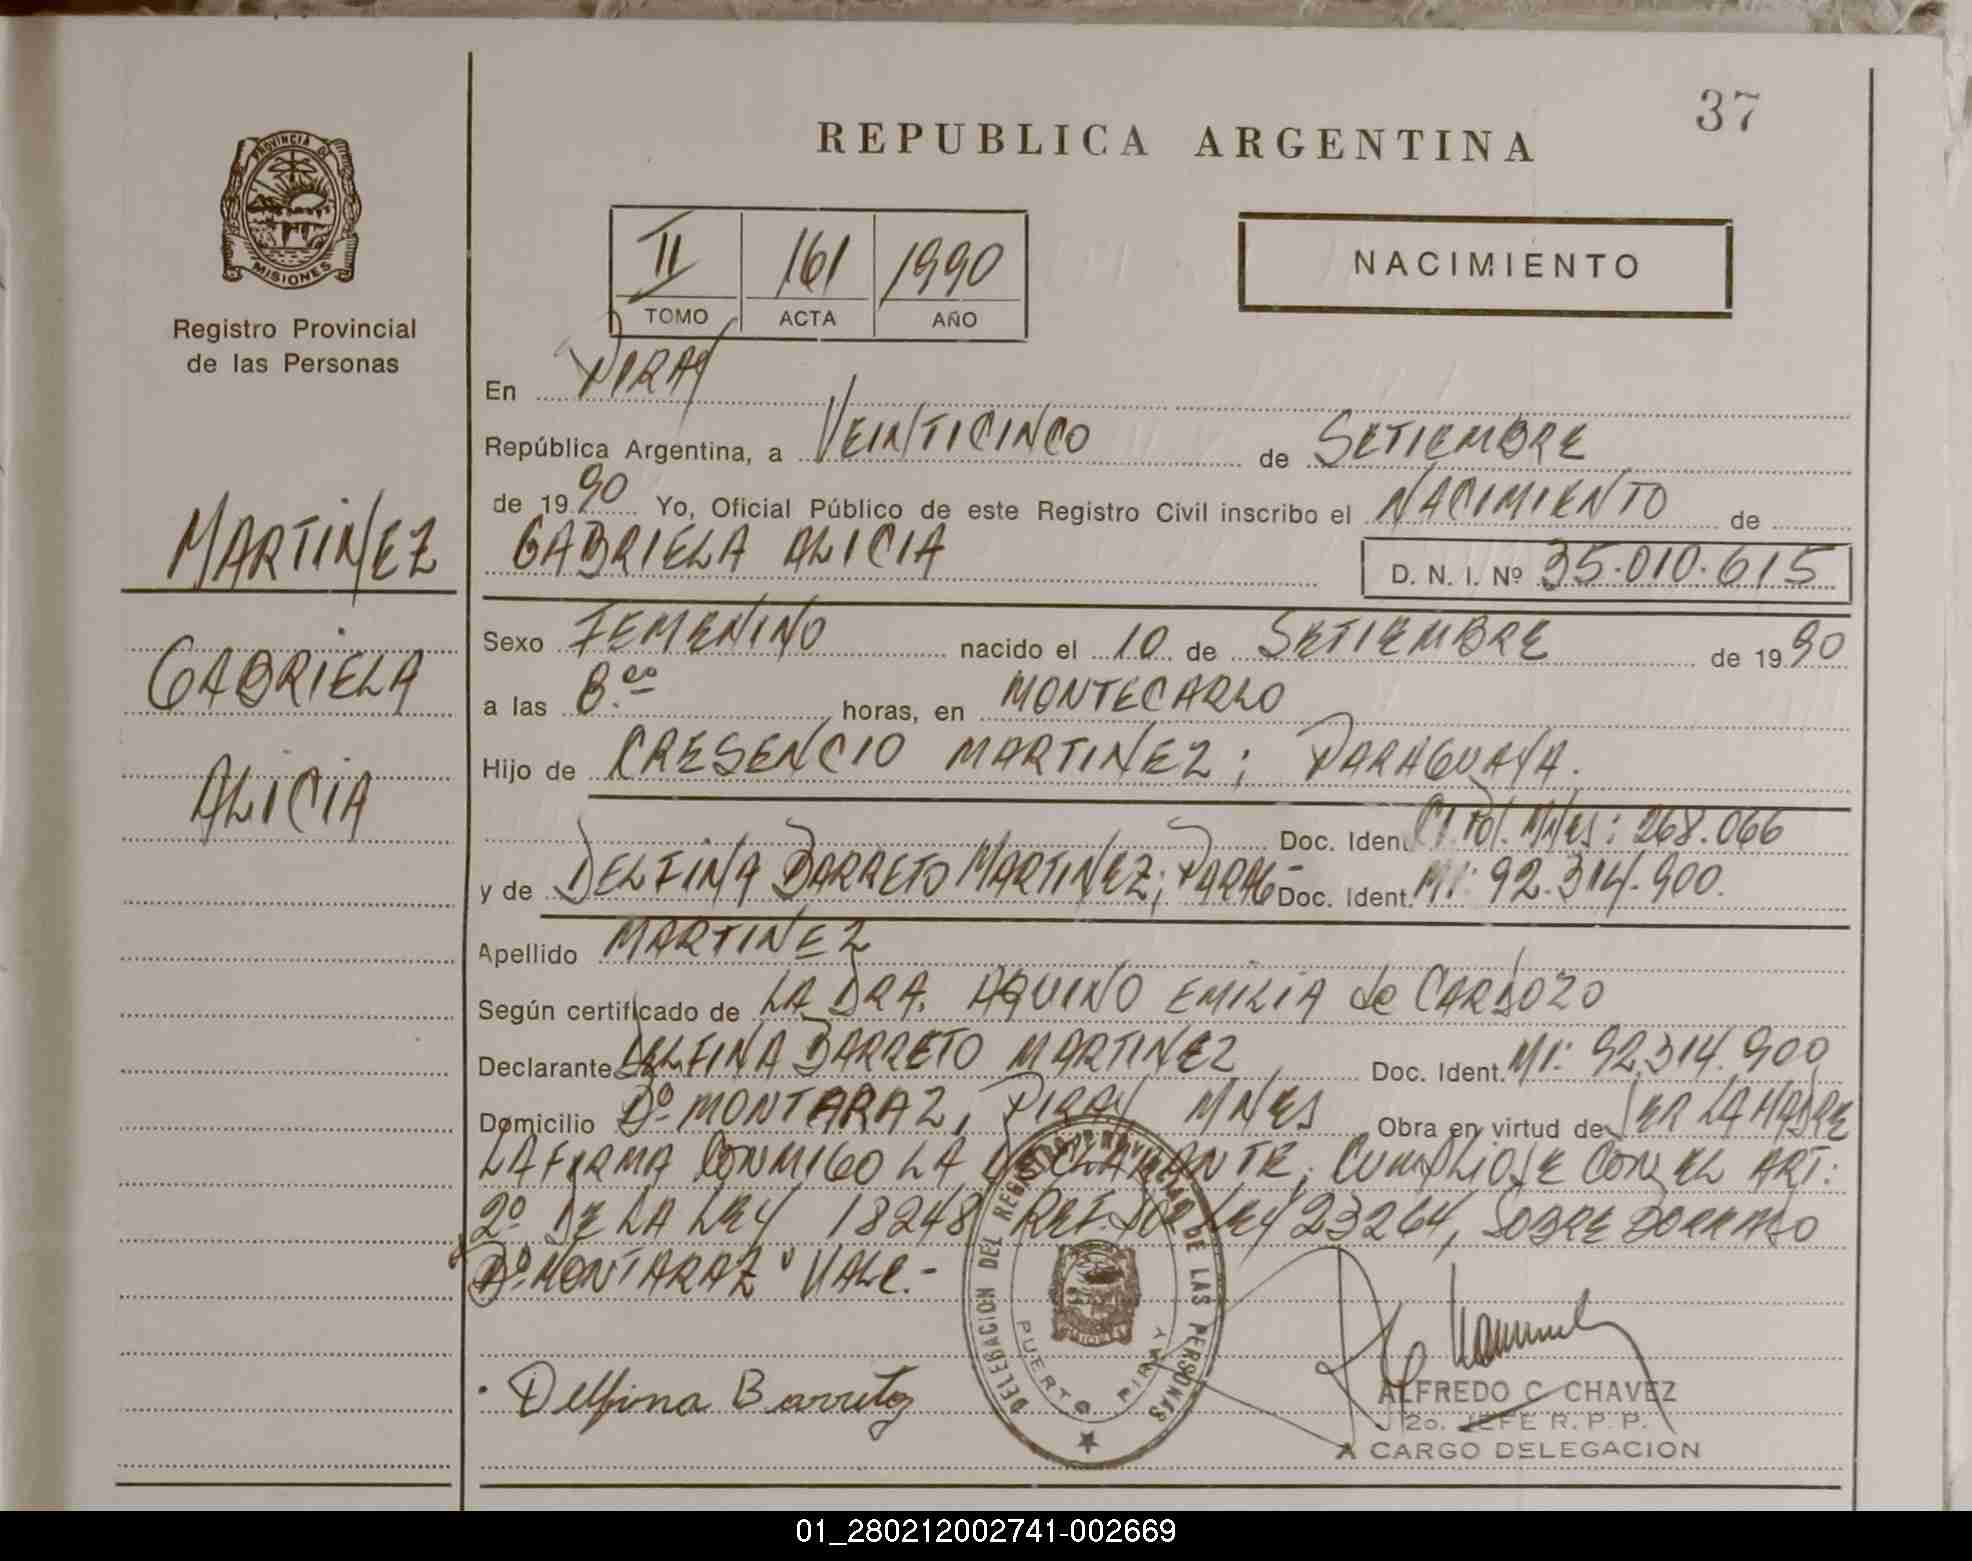 37
REPUBLICA ARGENTINA
PROVINCIA DE
MISIONES
Registro Provincial
de las Personas
II 161 1990
TOMO ACTA AÑO
NACIMIENTO
En PIRAY
República Argentina, a VEINTICINCO de SETIEMBRE
de 1990 Yo, Oficial Público de este Registro Civil inscribo el NACIMIENTO de
GABRIELA ALICIA D. N. I. Nº 35.010.615
MARTINEZ
GABRIELA
ALICIA
Sexo FEMENINO nacido el 10 de SETIEMBRE de 1990
a las 8.00 horas, en MONTECARLO
Hijo de CRESENCIO MARTINEZ; PARAGUAYA.
Doc. Ident. CI. Pol. Mnes: 268.066
y de DELFINA BARRETO MARTINEZ; PARAG- Doc. Ident. MI: 92.314.900.
Apellido MARTINEZ
Según certificado de LA DRA. AQUINO EMILIA de CARDOZO
Declarante DELFINA BARRETO MARTINEZ Doc. Ident. MI: 92.314.900
Domicilio Bº MONTARAZ, PIRAY MNES Obra en virtud de SER LA MADRE
LA FIRMA CONMIGO LA DECLARANTE; CUMPLIOSE CON EL ART:
2º DE LA LEY 18248 REF. POR LEY 23264, SOBRE BORRADO
Bº MONTARAZ" VALE.-
DELEGACION DEL REGISTRO PROVINCIAL DE LAS PERSONAS
PUERTO PIRAY
MISIONES
Delfina Barreto
ALFREDO C. CHAVEZ
2o. JEFE R. P. P.
A CARGO DELEGACION
01_280212002741-002669